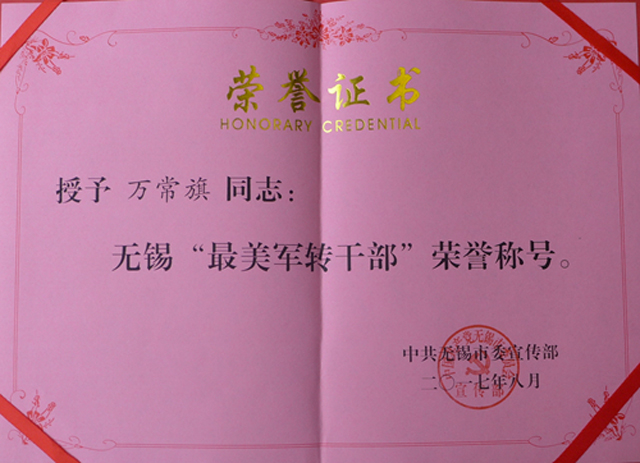 荣誉证书
HONORARY CREDENTIAL
授予 万常旗 同志：
无锡“最美军转干部”荣誉称号。
中共无锡市委宣传部
二〇一七年八月
宣传部